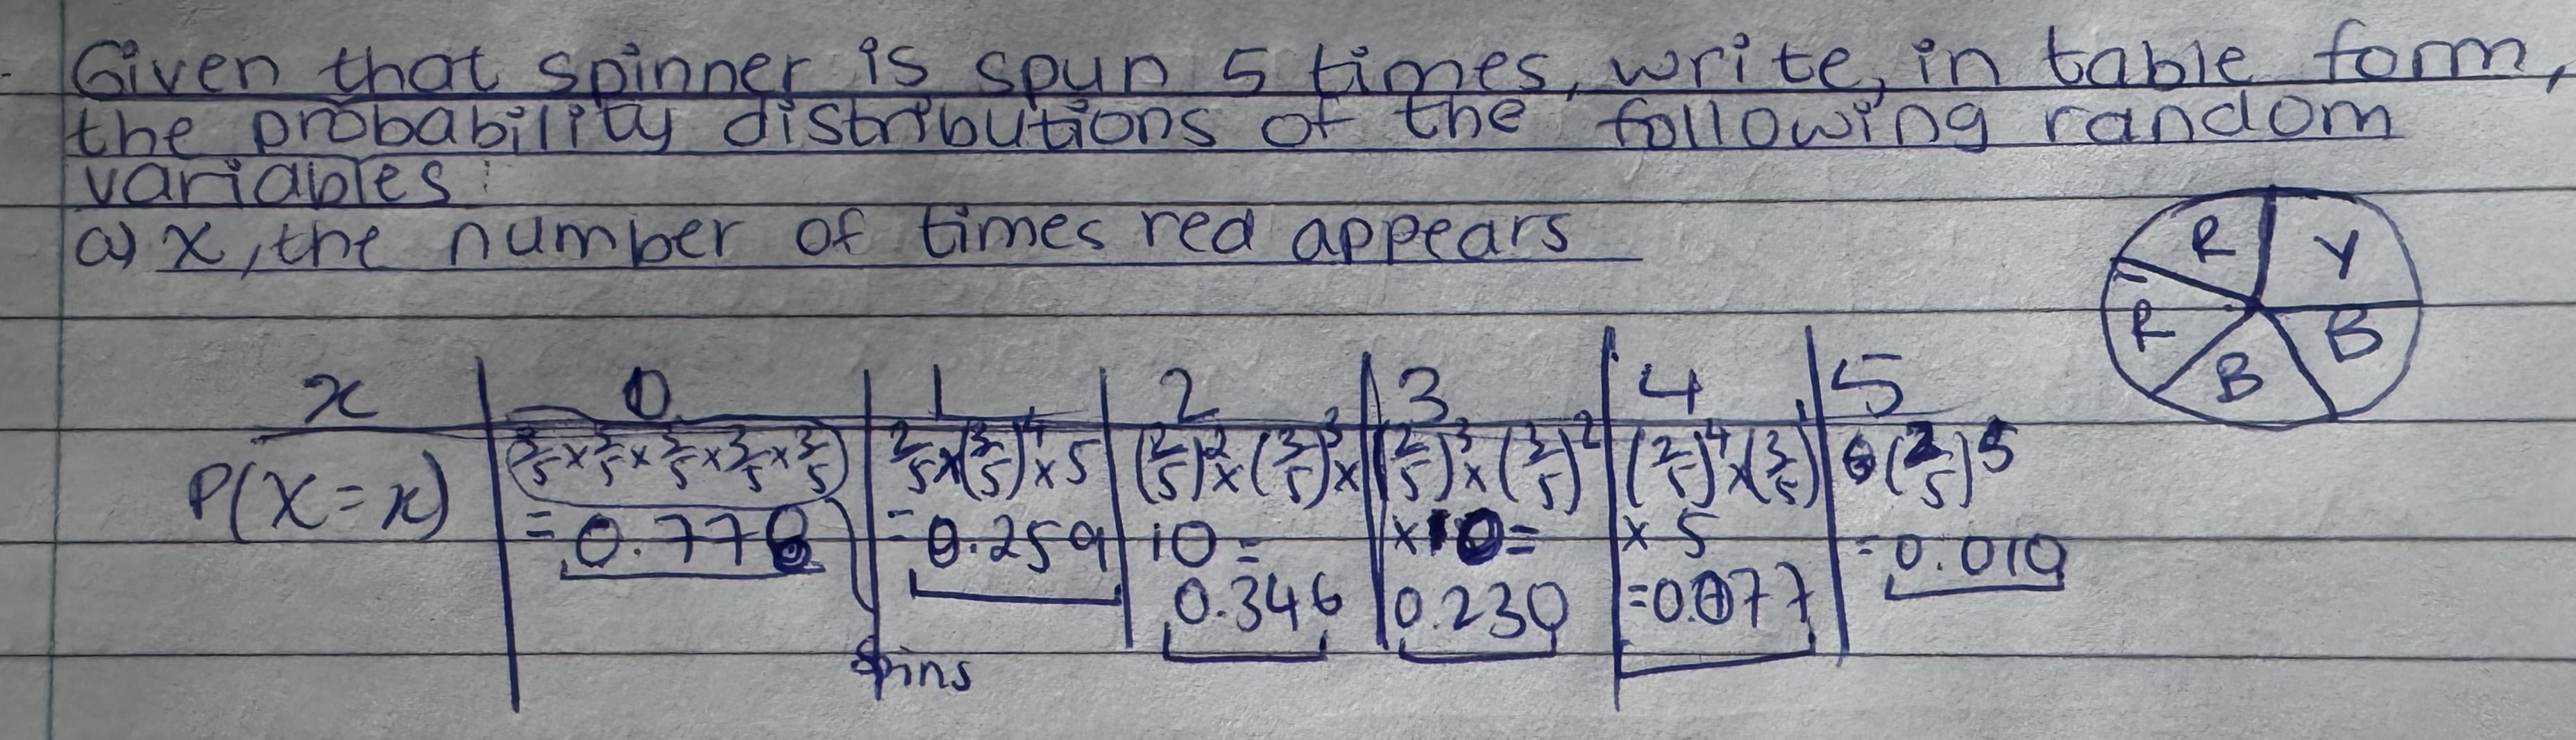 Given that spinner is spun 5 times, write, in table form,
the probability distributions of the following random
variables:
a) x, the number of times red appears
R Y
R B
B
x 0 1 2 3 4 5
P(X=x) (3/5 × 3/5 × 3/5 × 3/5 × 3/5) 2/5 × (3/5)^4 × 5 (2/5)^2 × (3/5)^3 × (2/5)^3 × (3/5)^2 (2/5)^4 × (3/5) (2/5)^5
= 0.778 = 0.259 10 = × 10 = × 5 = 0.010
0.346 0.230 = 0.077
spins